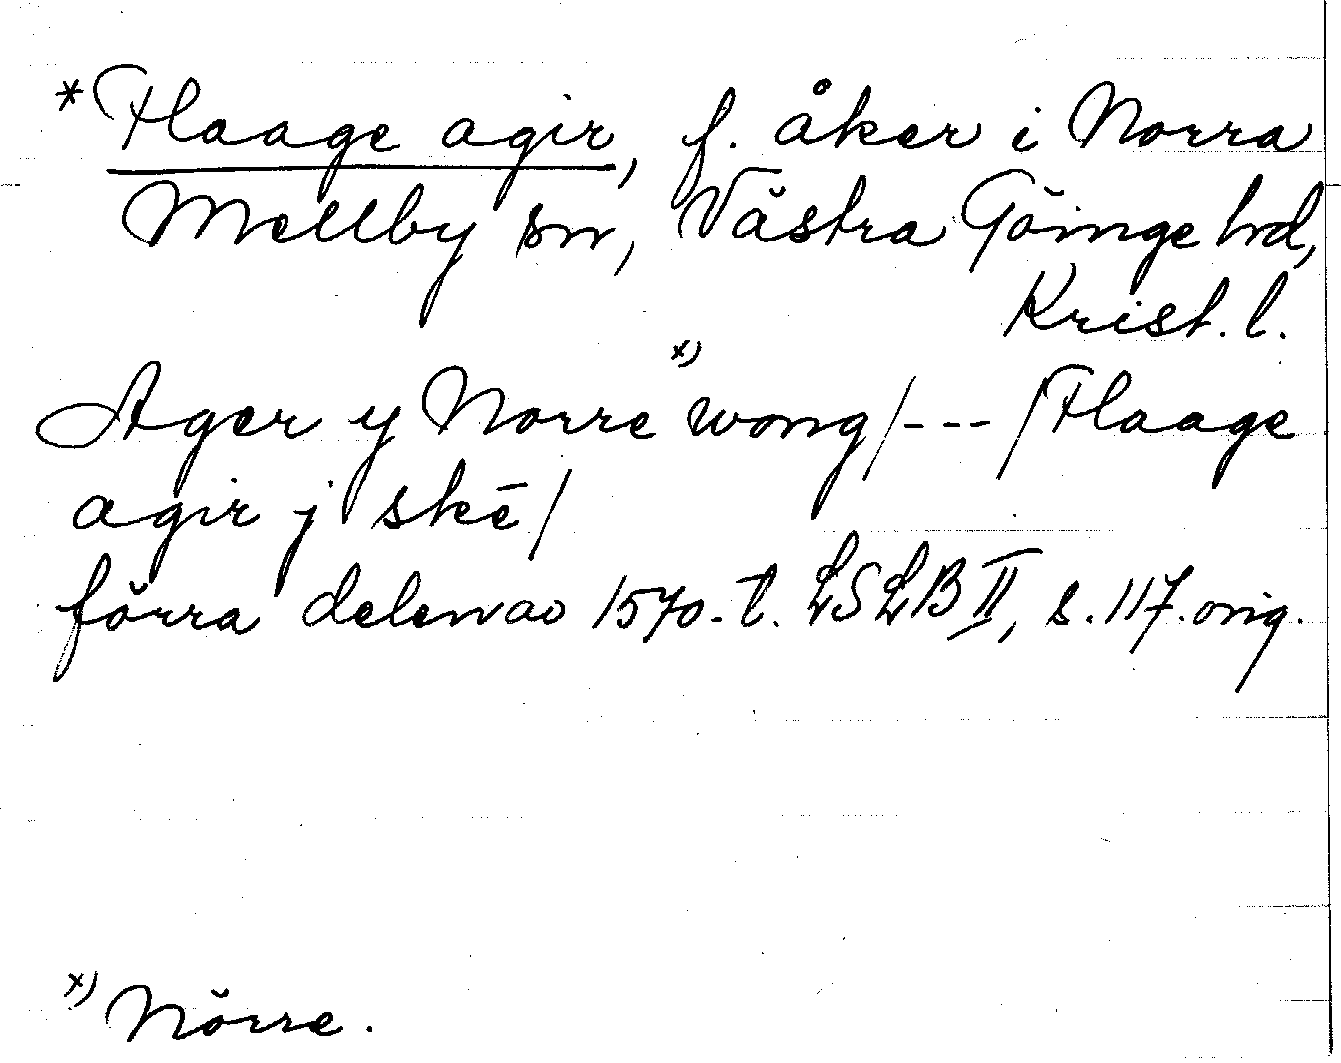 *Haage agir, f. åker i Norra
Mellby sn, Västra Göinge hd,
Krist. l.
Ager y Norre x) wong/---/Haage
agir j skē/
förra delen av 1570-t. LSLB II, s. 117. orig.
x) Nörre.